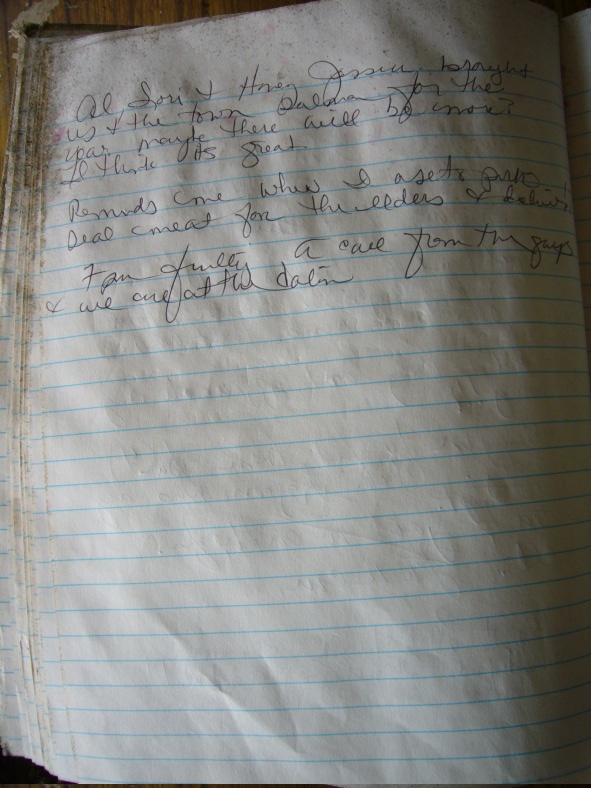 Al Lori & Harry Jessica brought
us & the town Salmon for the
year maybe there will be more?
I think its great
Reminds me when I use to
Seal meat for the elders &
7 pm finally a call from the guys
& we are at the